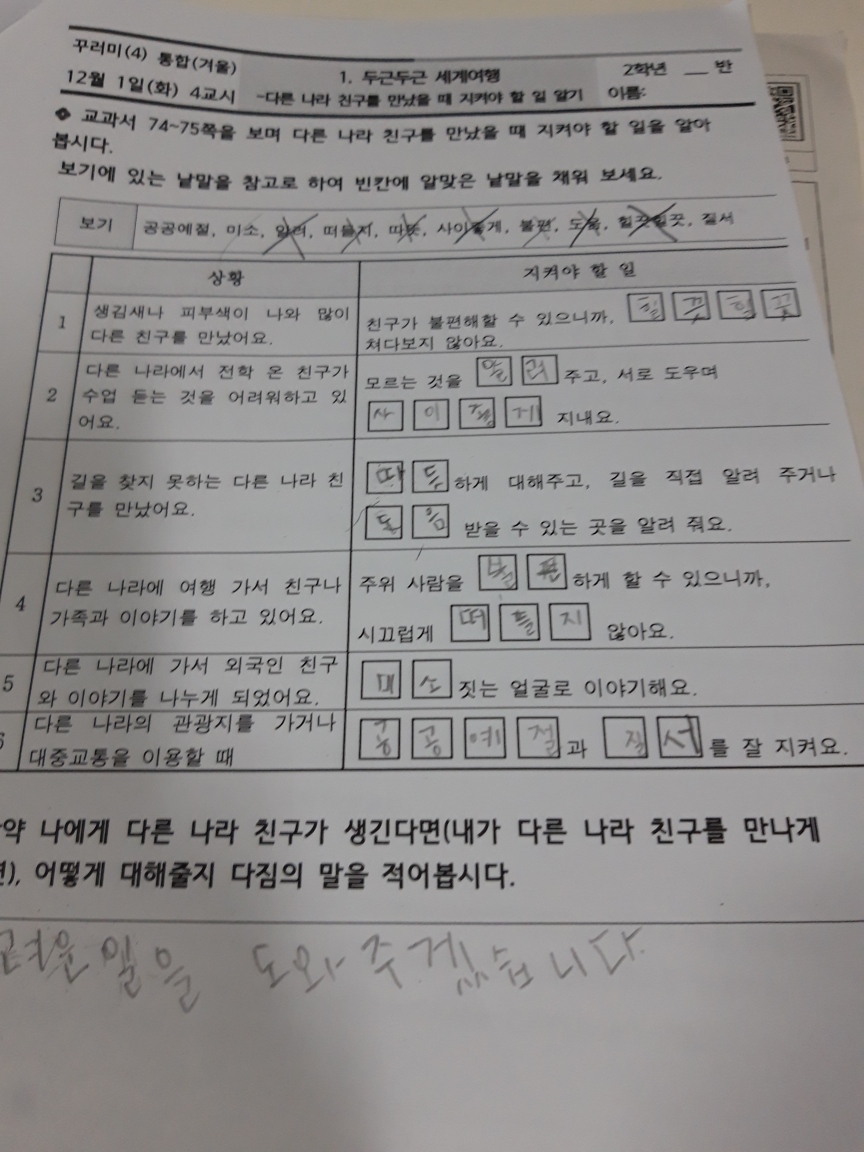 꾸러미(4) 통합(겨울)
12월 1일(화) 4교시
1. 두근두근 세계여행
-다른 나라 친구를 만났을 때 지켜야 할 일 알기
2학년 __ 반
이름:
◈ 교과서 74~75쪽을 보며 다른 나라 친구를 만났을 때 지켜야 할 일을 알아
봅시다.
보기에 있는 낱말을 참고로 하여 빈칸에 알맞은 낱말을 채워 보세요.
보기 공공예절, 미소, 알려, 떠들지, 따뜻, 사이좋게, 불편, 도움, 힐끗힐끗, 질서
상황 지켜야 할 일
1 생김새나 피부색이 나와 많이
다른 친구를 만났어요.
친구가 불편해할 수 있으니까, 힐 끗 힐 끗
쳐다보지 않아요.
2 다른 나라에서 전학 온 친구가
수업 듣는 것을 어려워하고 있
어요.
모르는 것을 알 려 주고, 서로 도우며
사 이 좋 게 지내요.
3 길을 찾지 못하는 다른 나라 친
구를 만났어요.
따 뜻 하게 대해주고, 길을 직접 알려 주거나
도 움 받을 수 있는 곳을 알려 줘요.
4 다른 나라에 여행 가서 친구나
가족과 이야기를 하고 있어요.
주위 사람을 불 편 하게 할 수 있으니까,
시끄럽게 떠 들 지 않아요.
5 다른 나라에 가서 외국인 친구
와 이야기를 나누게 되었어요.
미 소 짓는 얼굴로 이야기해요.
다른 나라의 관광지를 가거나
대중교통을 이용할 때
공 공 예 절 과 질 서 를 잘 지켜요.
약 나에게 다른 나라 친구가 생긴다면(내가 다른 나라 친구를 만나게
), 어떻게 대해줄지 다짐의 말을 적어봅시다.
려운 일을 도와 주겠습니다